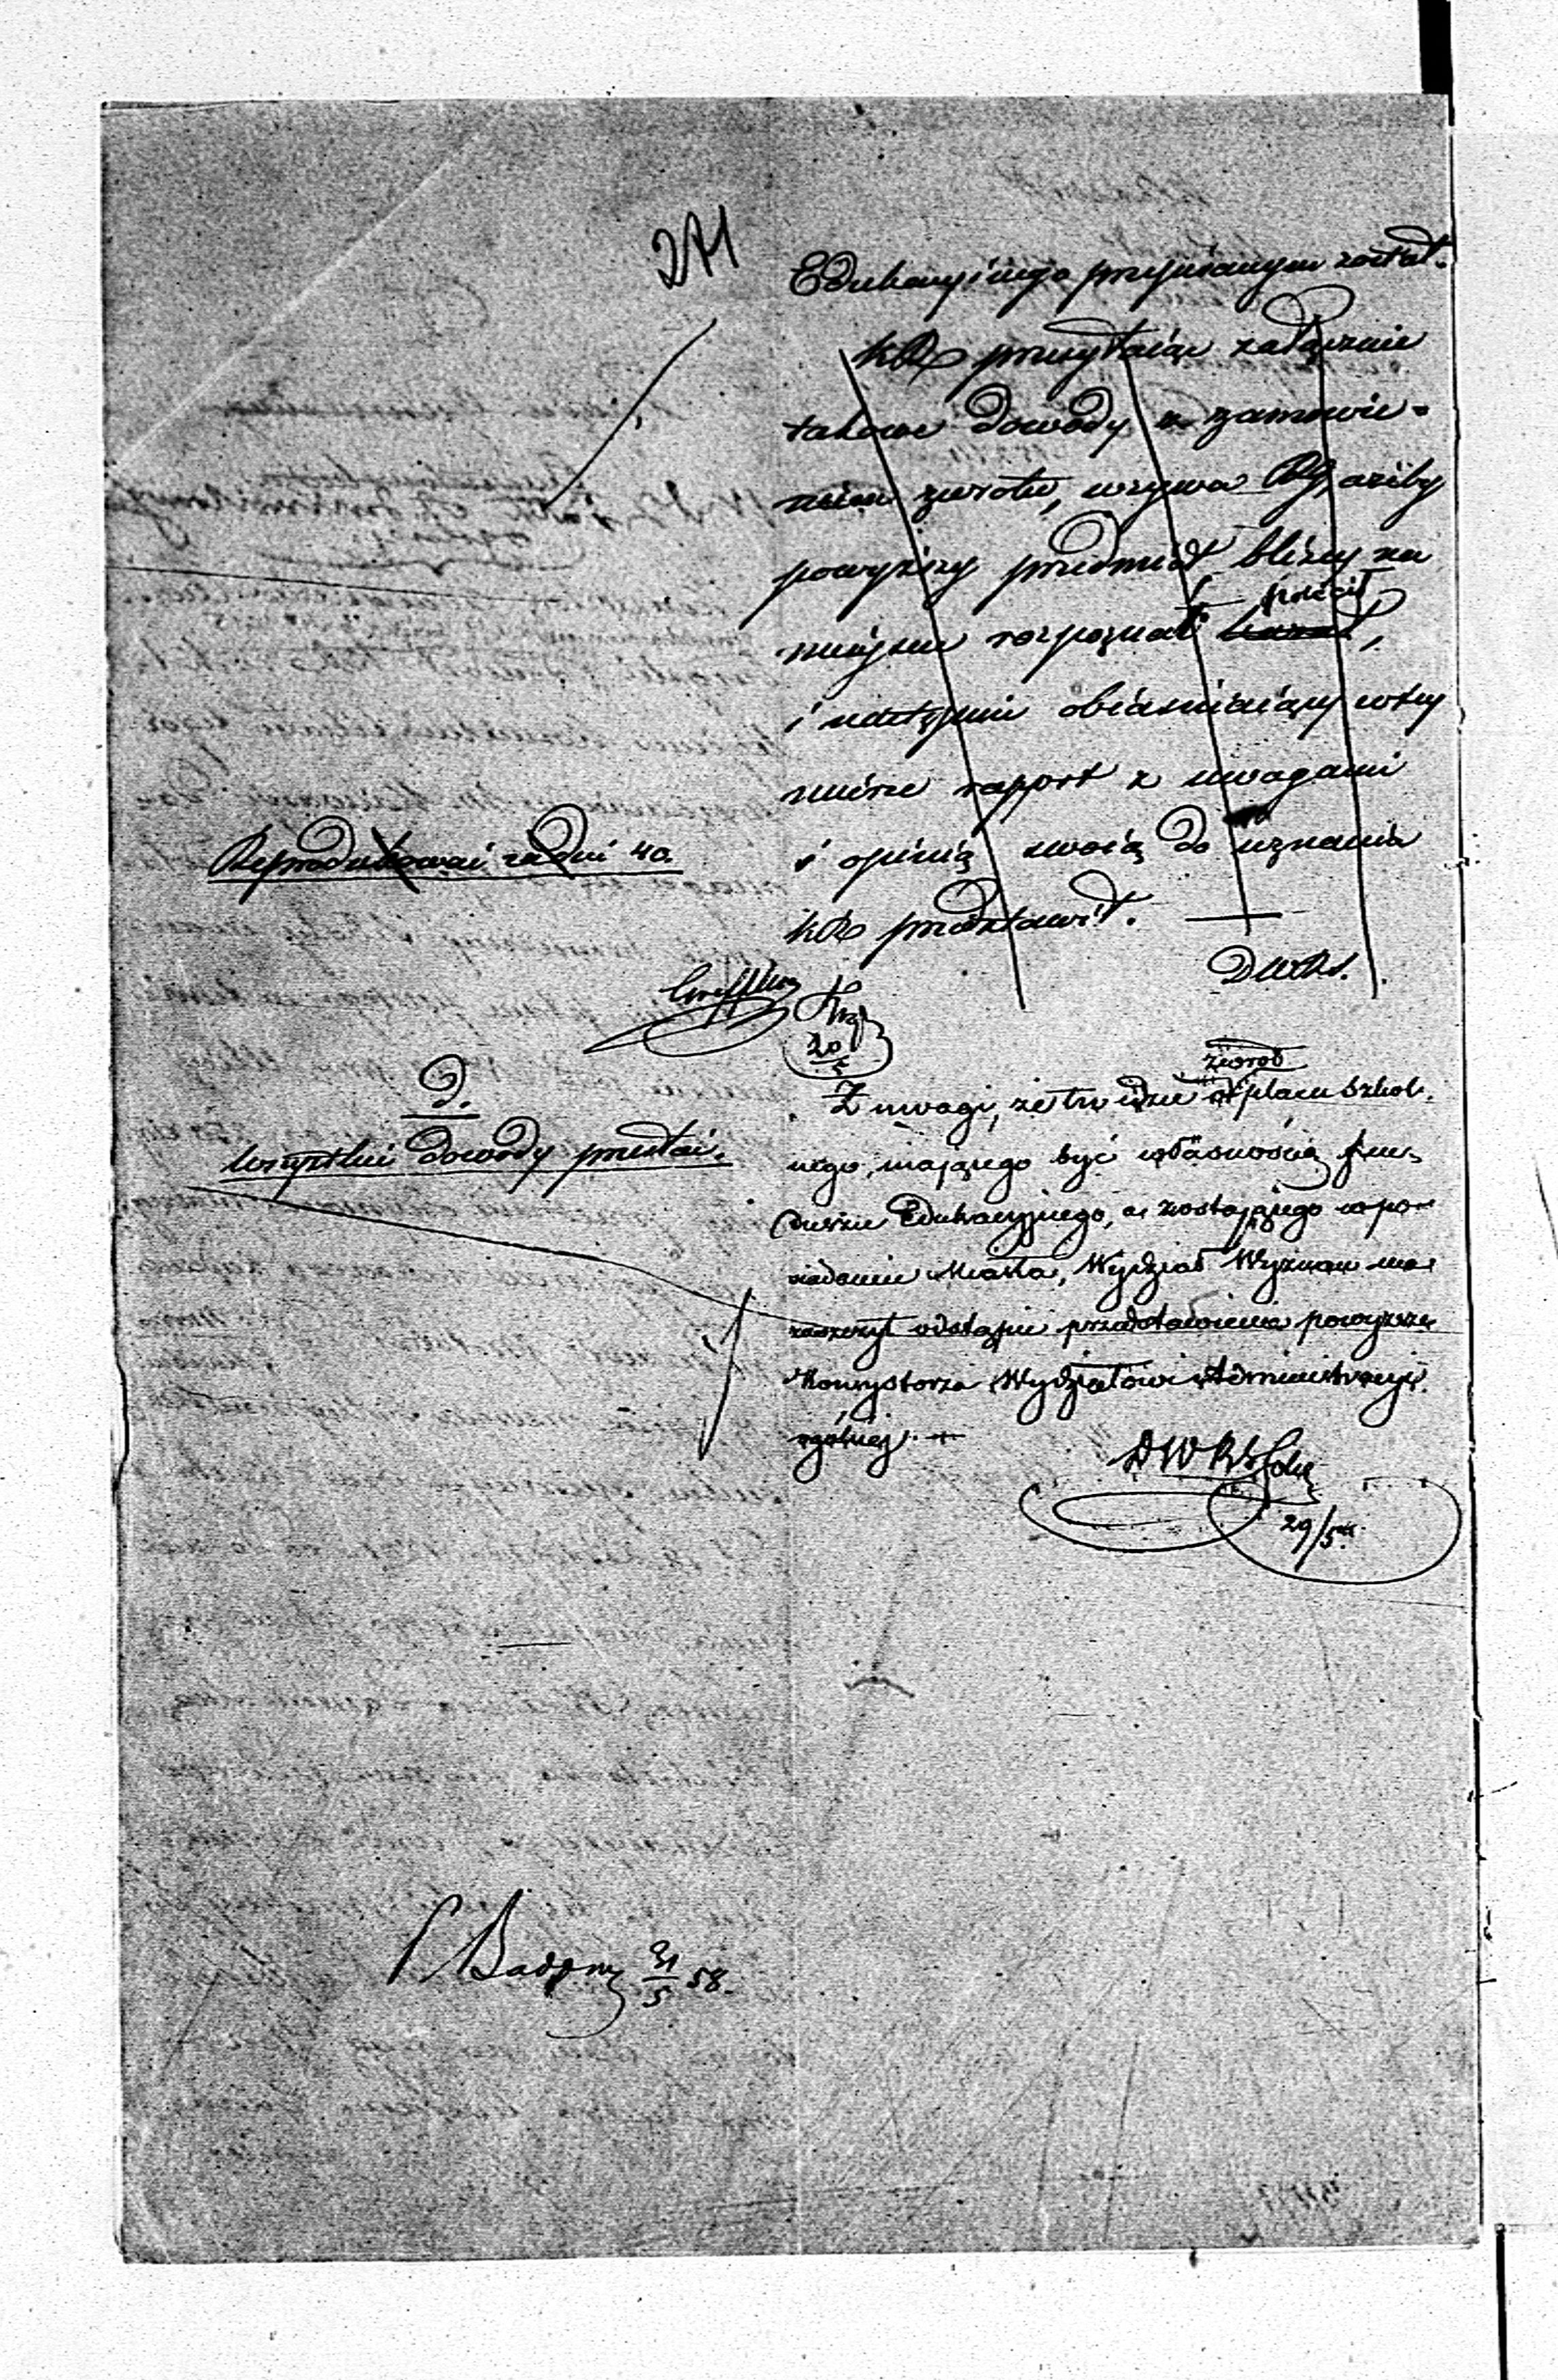 271
Edukacyjnego przyznanym został.
KR przesyłaiąc załącznie
takowe dowody z zamówie-
niem zwrotu, wzywa RG, ażeby
powyższy przedmiot bliżey na
mieyscu rozpoznać kazał, polecił
i następnie obiaśniaiący w tey
mierze rapport z uwagami
i opinią swoią do uznania
KR przedstawił.
DWRS.
Reprodukować za dni 40.
20/5
D.
Wszystkie dowody przesłać.
Z uwagi, że tu idzie o zwrot placu szkol-
nego, mającego być własnością fun-
duszu Edukacyjnego, a zostającego w po-
siadaniu Miasta, Wydział Wyznań ma
zaszczyt odstąpić przedstawienie powyższe
Konsystorza Wydziałowi Administracyi
ogólnej.
DWRS
29/5
31/5 58.